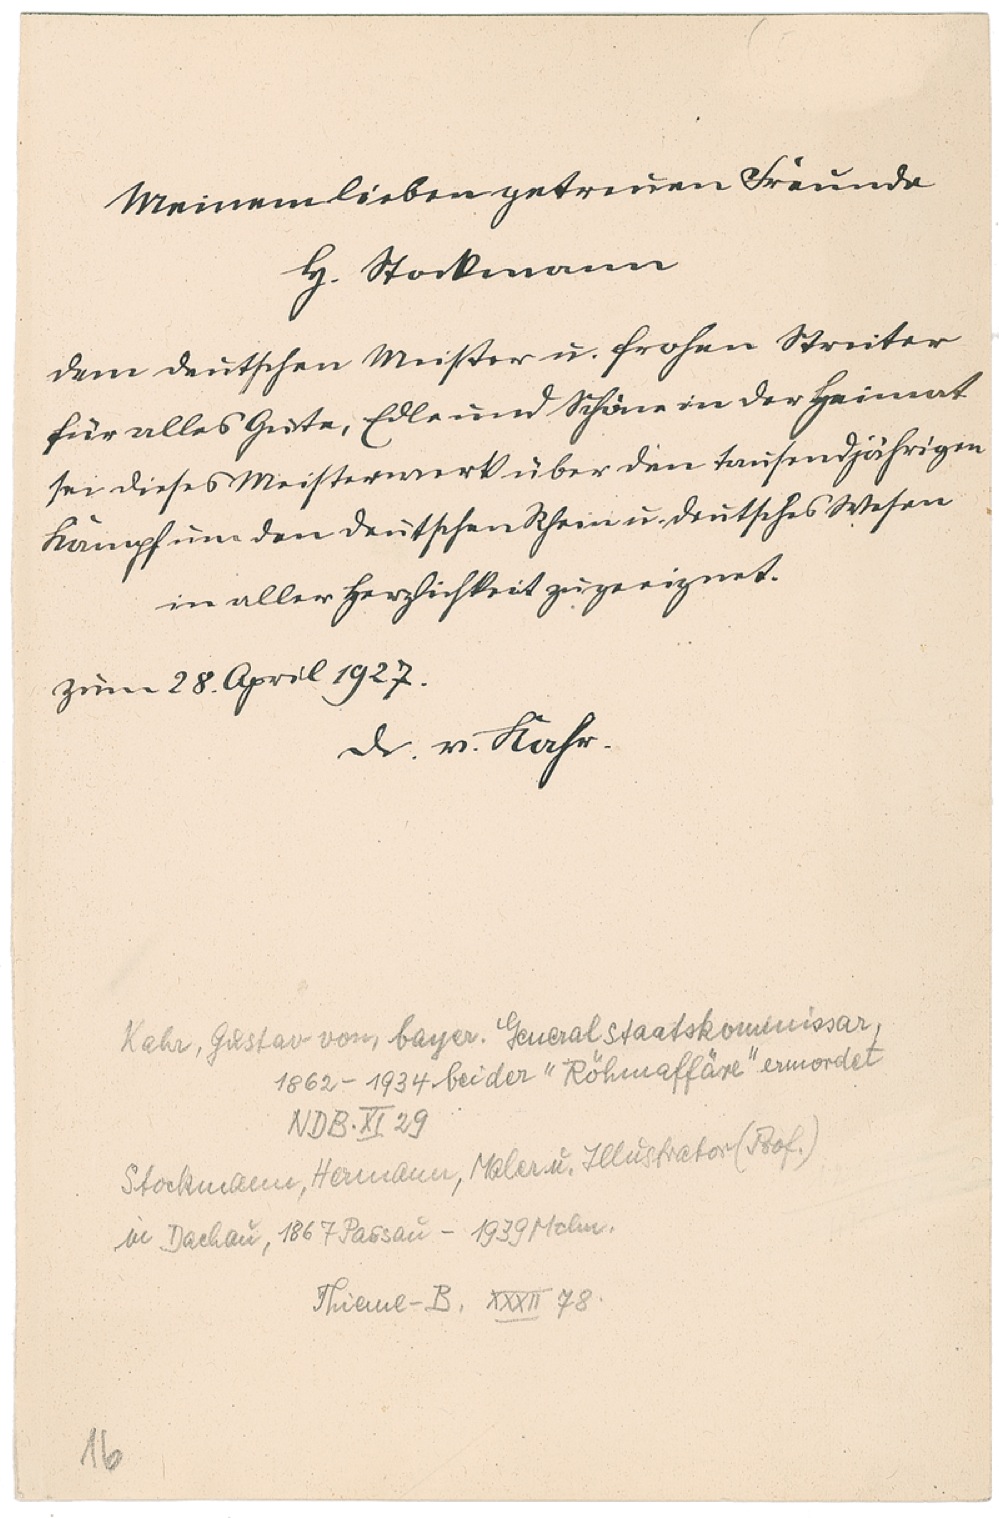 Meinem lieben getreuen Freunde
H. Stockmann
dem deutschen Meister u. frohen Streiter
für alles Gute, Edle und Schöne in der Heimat
sei dieses Meisterwerk über den tausendjährigen
Kampf um den deutschen Rhein u. deutsches Wesen
in aller Herzlichkeit zugeeignet.
zum 28. April 1927.
Dr. v. Kahr.
Kahr, Gustav von, bayer. Generalstaatskommissar,
1862 - 1934 bei der "Röhmaffäre" ermordet
NDB. XI 29
Stockmann, Hermann, Maler u. Illustrator (Prof.)
in Dachau, 1867 Passau - 1939 Mchn.
Thieme-B. XXXII 78.
16